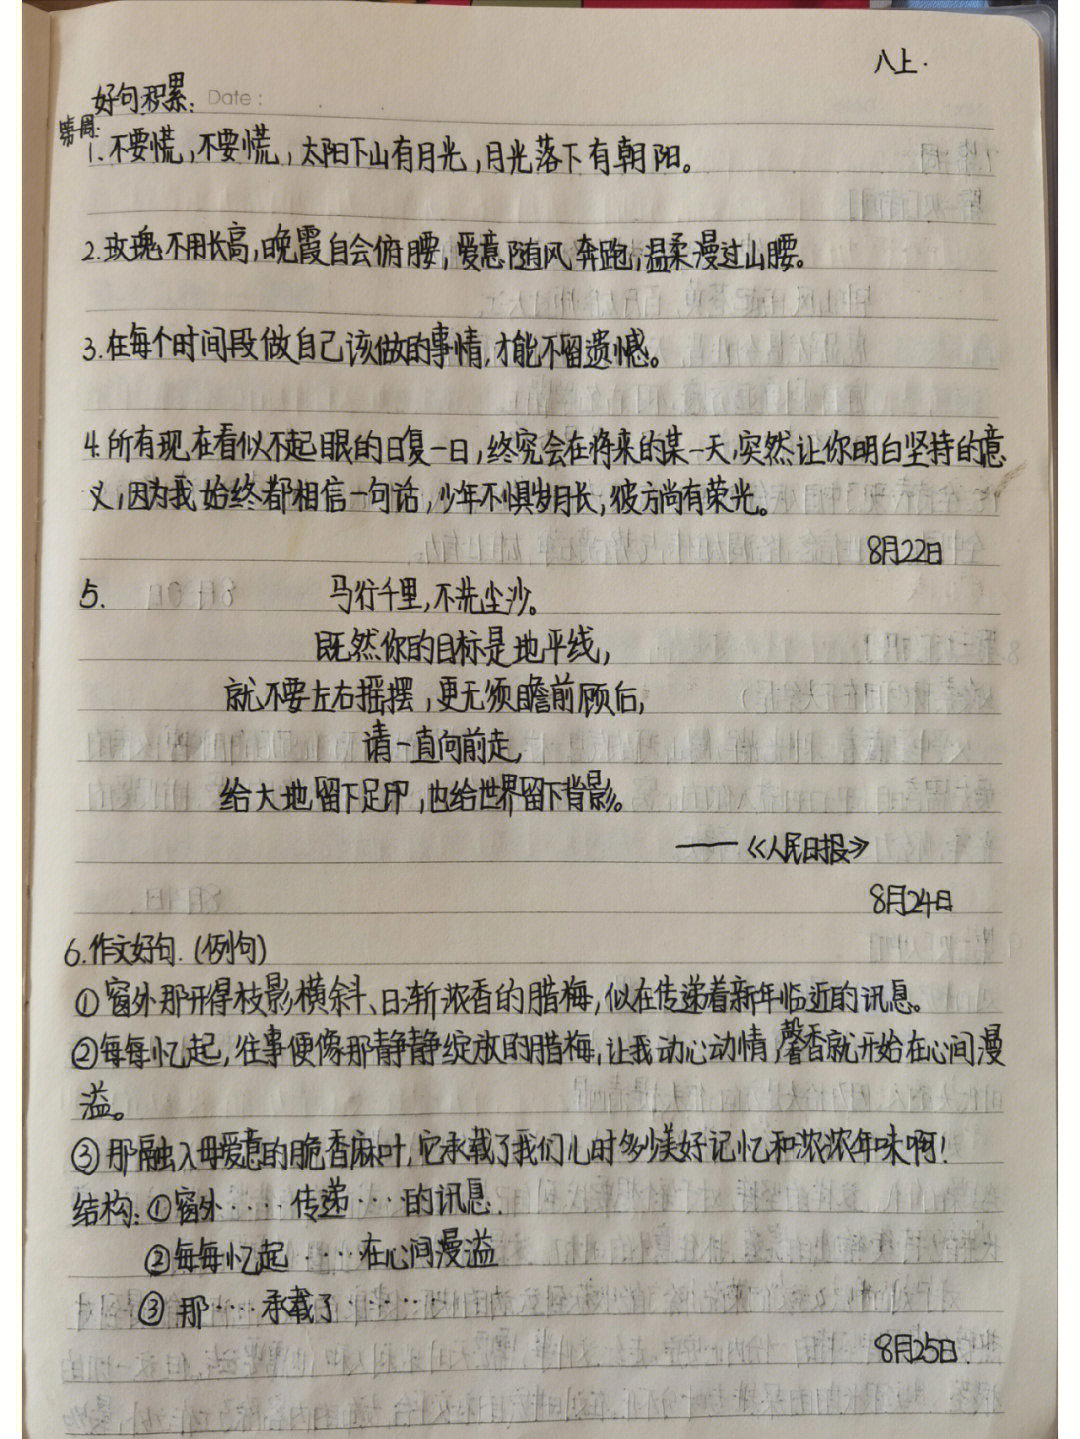 八上.
好句积累: Date:
第一周:
1.不要慌,不要慌,太阳下山有月光,月光落下有朝阳。
2.玫瑰不用长高,晚霞自会俯腰,爱意随风奔跑,温柔漫过山腰。
3.在每个时间段做自己该做的事情,才能不留遗憾。
4.所有现在看似不起眼的日复一日,终究会在将来的某一天,突然让你明白坚持的意
义,因为我始终都相信一句话,少年不惧岁月长,彼方尚有荣光。
8月22日
5. 马行千里,不洗尘沙。
既然你的目标是地平线,
就不要左右摇摆,更无须瞻前顾后,
请一直向前走,
给大地留下足印,也给世界留下背影。
——《人民日报》
8月24日
6.作文好句.(例句)
①窗外那开得枝影横斜、日渐浓香的腊梅,似在传递着新年临近的讯息。
②每每忆起,往事便像那静静绽放的腊梅,让我动心动情,馨香就开始在心间漫
溢。
③那融入母爱意的脆香麻叶,它承载了我们儿时多少美好记忆和浓浓年味啊!
结构:①窗外·····传递····的讯息.
②每每忆起·····在心间漫溢
③那····承载了······
8月25日.